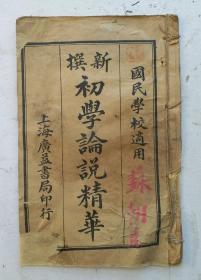 國民學校適用
新撰
初學論說精華
上海廣益書局印行
蘇州